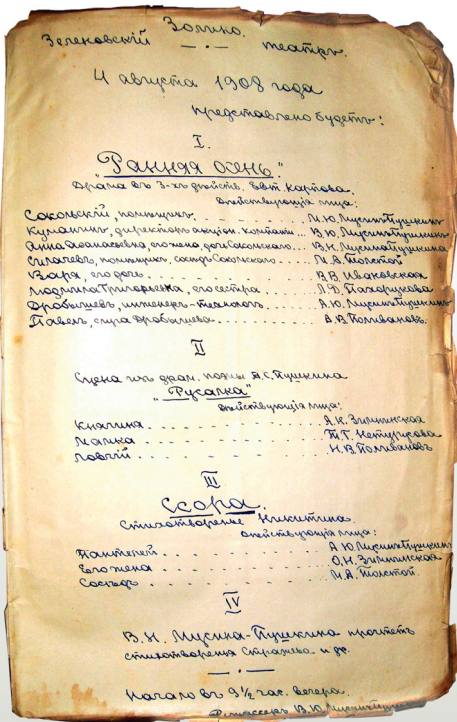 Золино.
Зеленовскій театръ.
4 августа 1908 года
представлено будетъ:
I.
"Ранняя осень"
Драма въ 3-хъ дѣйств. Евт. Карпова.
Дѣйствующія лица:
Сокольскій, помѣщикъ М.Ю. Мусинъ-Пушкинъ
Кумагин, директоръ акціон. компаніи В.Ю. Мусинъ-Пушкинъ
Анна Афанасьевна, его жена, дочь Сокольского В.Н. Мусина-Пушкина
Силачевъ, помѣщикъ, сосѣдъ Сокольского М.А. Толстой
Варя, его дочь В.В. Иваковская
Людмила Григорьевна, его сестра Л.Ф. Пахорукова
Дробышевъ, инженеръ-технологъ А.Ю. Мусинъ-Пушкинъ
Павелъ, слуга Дробышева А.В. Поливановъ.
II
Сцена изъ драм. поэмы А.С. Пушкина
"Русалка"
Дѣйствующія лица:
Княгиня А.К. Зыбинская
Мамка Т.Г.
Ловчій Н.В. Поливановъ
III
Ссора.
Стихотвореніе Никитина.
Дѣйствующія лица:
Пантелей А.Ю. Мусинъ-Пушкинъ
Его жена О.Н.
Сосѣдъ М.А. Толстой.
IV
В.Н. Мусина-Пушкина прочтетъ
стихотворенья Стражева и др.
Начало въ 9½ час. вечера.
Режиссеръ В.Ю. Мусинъ-Пушкинъ